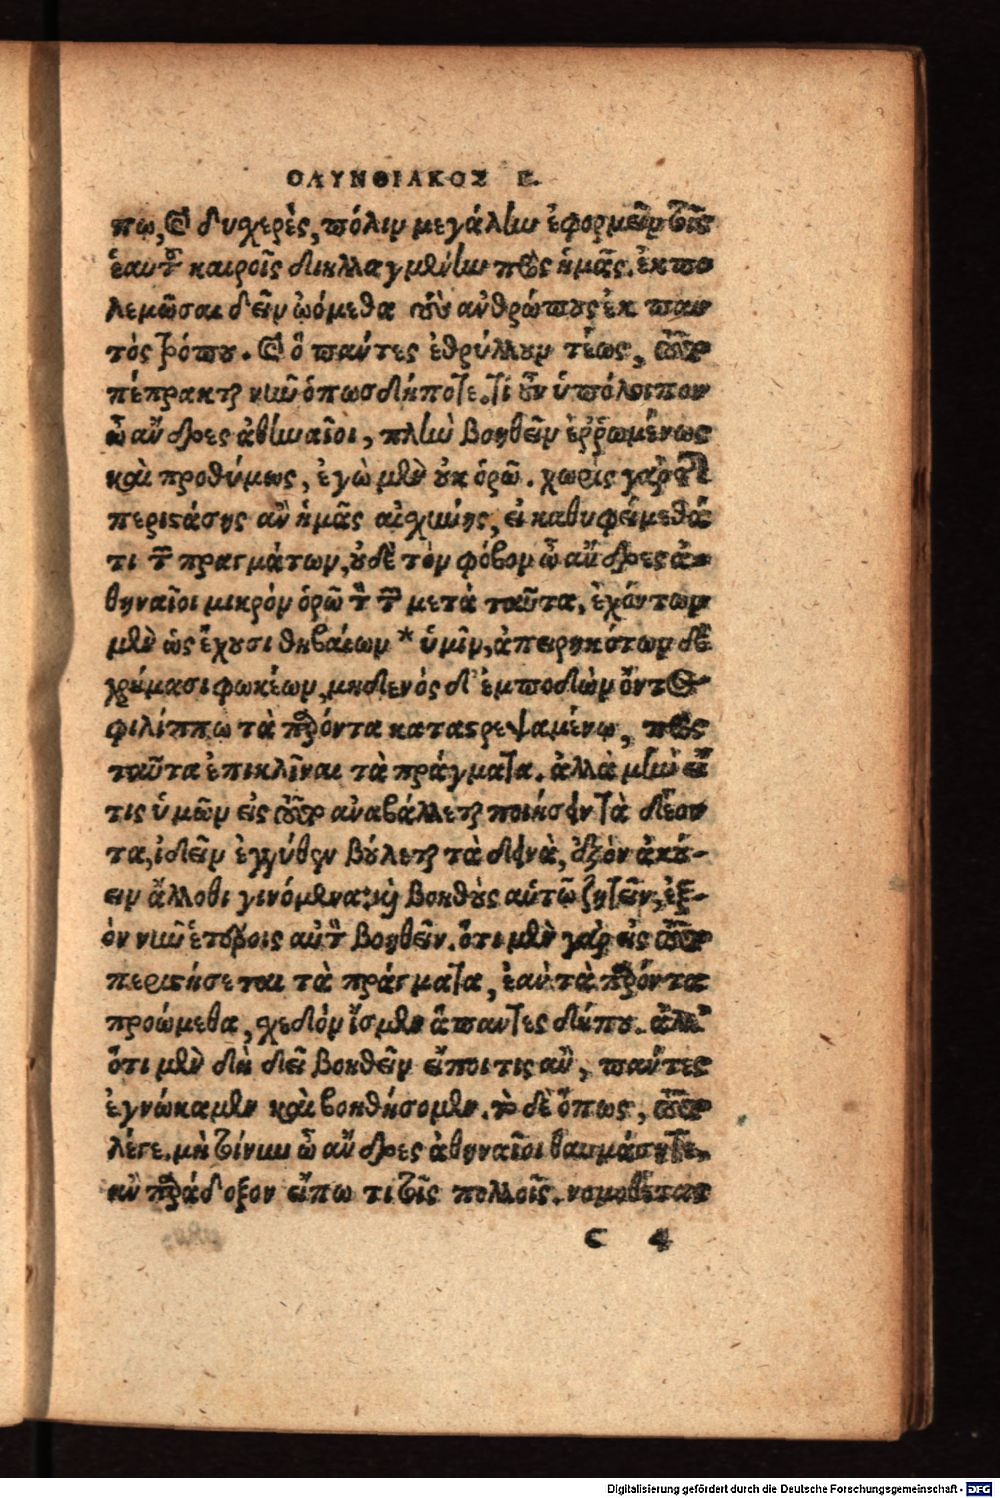 ΟΛΥΝΘΙΑΚΟΣ Γ.
πω, καὶ δυχερὲς, πόλιν μεγάλην ἐφορμεῖν τοῖς
ἑαυτῶν καιροῖς διηλλαγμένην πρὸς ἡμᾶς. ἐκπο
λεμῶσαι δεῖν ᾠόμεθα τοὺς ἀνθρώπους ἐκ παν
τὸς τρόπου. καὶ ὃ πάντες ἐθρύλλουν τέως, τοῦτο
πέπρακται νυνὶ ὁπωσδήποτε. τί οὖν ὑπόλοιπον
ὦ ἄνδρες ἀθηναῖοι, πλὴν βοηθεῖν ἐῤῥωμένως
καὶ προθύμως, ἐγὼ μὲν οὐκ ὁρῶ. χωρὶς γὰρ τῆς
περιστάσης ἂν ἡμᾶς αἰσχύνης, εἰ καθυφείμεθά
τι τῶν πραγμάτων, οὐδὲ τὸν φόβον ὦ ἄνδρες ἀ-
θηναῖοι μικρὸν ὁρῶ τὸν τῶν μετὰ ταῦτα, ἐχόντων
μὲν ὡς ἔχουσι θηβαίων * ὑμῖν, ἀπειρηκότων δὲ
χρήμασι φωκέων, μηδενὸς δ' ἐμποδὼν ὄντος
φιλίππῳ τὰ παρόντα καταστρεψαμένῳ, πρὸς
ταῦτα ἐπικλῖναι τὰ πράγματα. ἀλλὰ μὴν εἴ
τις ὑμῶν εἰς τοῦτο ἀναβάλλεται ποιήσειν τὰ δέον
τα, ἰδεῖν ἐγγύθεν βούλεται τὰ δεινὰ, ἐξὸν ἀκού-
ειν ἄλλοθι γινόμενα· καὶ βοηθοὺς αὑτῷ ζητεῖν, ἐξ-
ὸν νυνὶ ἑτέροις αὐτὸν βοηθεῖν. ὅτι μὲν γὰρ εἰς τοῦτο
περιστήσεται τὰ πράγματα, ἐὰν τὰ παρόντα
προώμεθα, σχεδὸν ἴσμεν ἅπαντες δήπου. ἀλλ'
ὅτι μὲν δὴ δεῖ βοηθεῖν εἴποι τις ἂν, πάντες
ἐγνώκαμεν καὶ βοηθήσομεν. τὸ δὲ ὅπως, τοῦτο
λέγε. μὴ τοίνυν ὦ ἄνδρες ἀθηναῖοι θαυμάσητε,
ἂν παράδοξον εἴπω τι τοῖς πολλοῖς. νομοθέτας
C 4
Digitalisierung gefördert durch die Deutsche Forschungsgemeinschaft - DFG